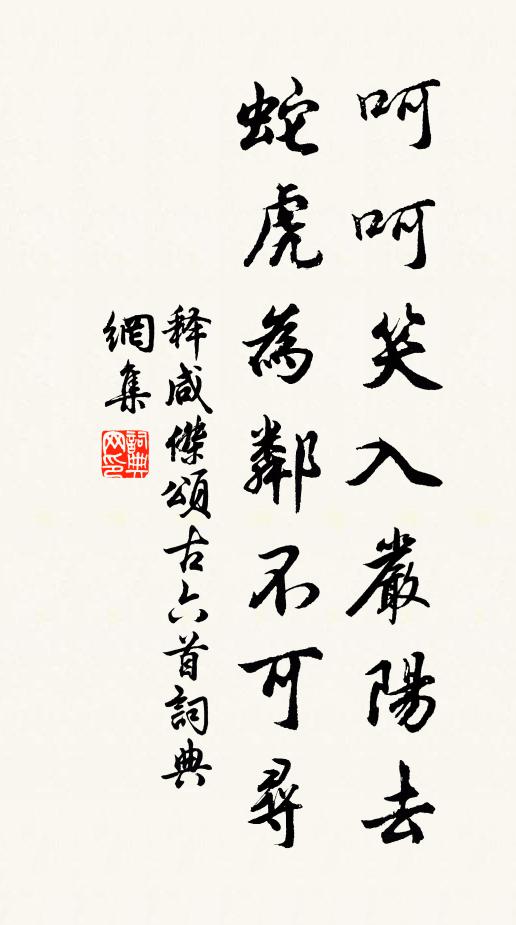 呵呵笑入嚴陽去
蛇虎為鄰不可尋
释咸傑頌古六首詞典
網集
詞典網印